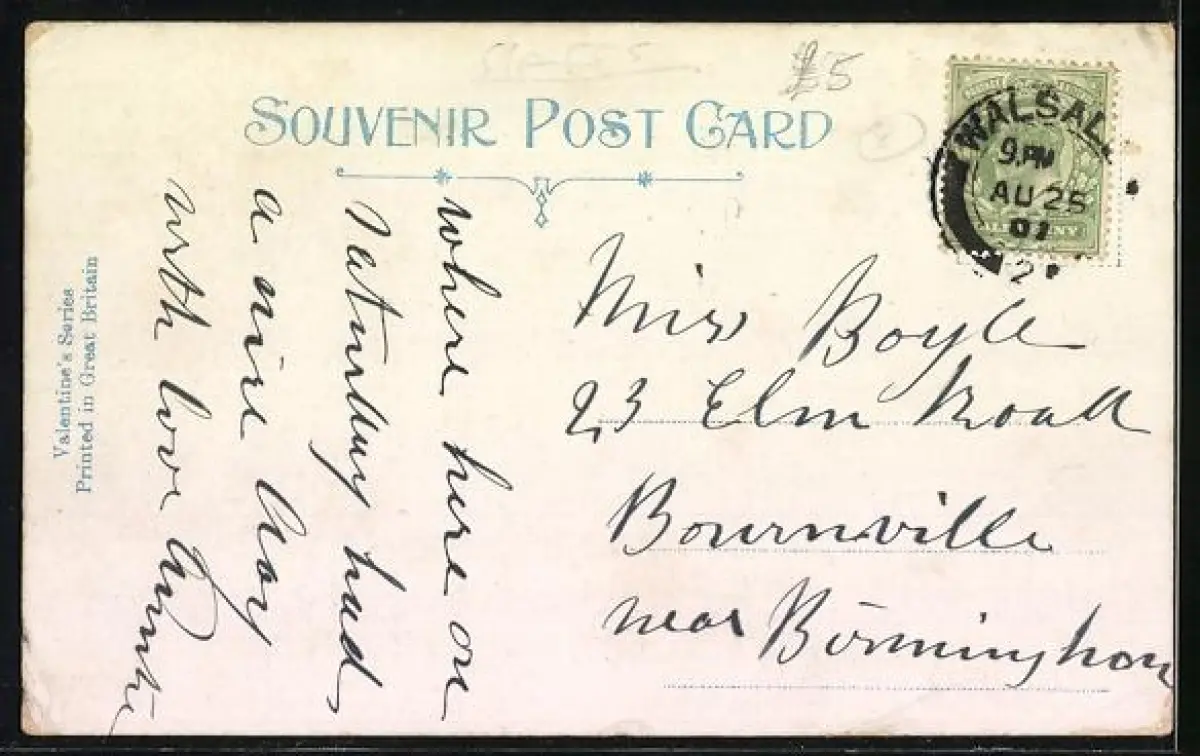 £5
SOUVENIR POST CARD
WALSALL
9PM
AU 25
2
Valentine's Series
Printed in Great Britain
where here on
Saturday had
a nice day
with love Auntie
Miss Boyle
23 Elm Road
Bournville
near Birmingham